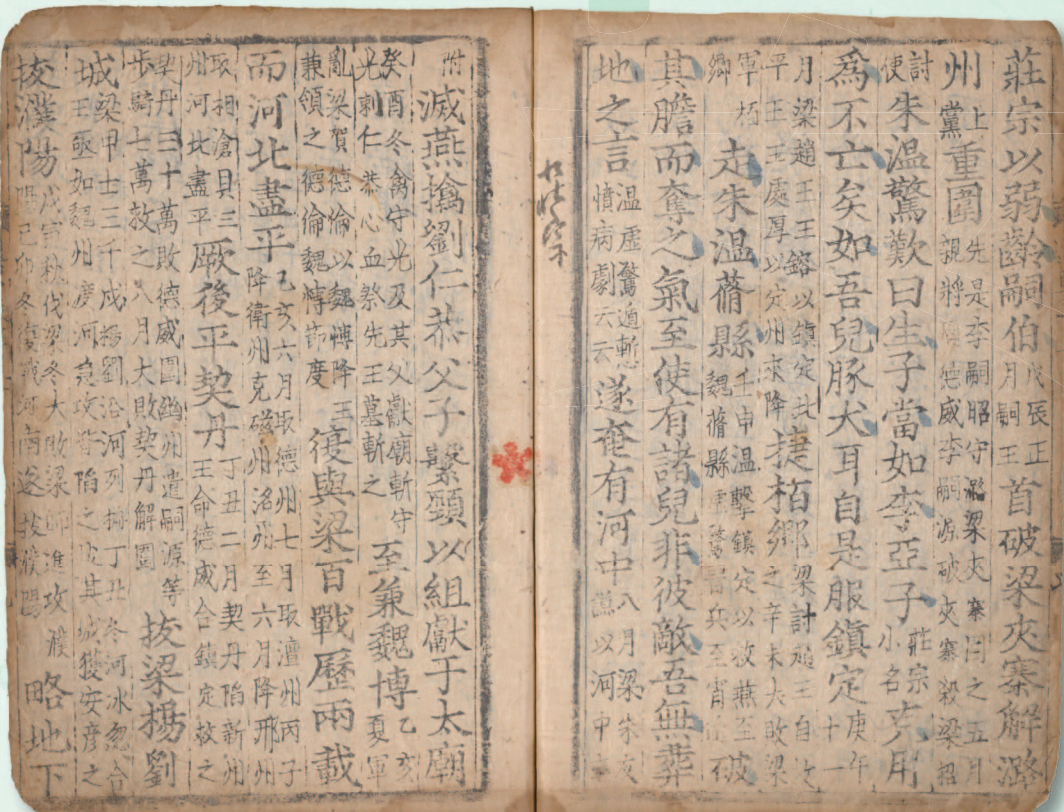 莊宗以弱齡嗣伯戊辰正月嗣王首破梁夾寨解潞
州上黨重圍先是李嗣昭守潞梁夾寨囙之五月親將周德威李嗣源破夾寨殺梁招
討使朱溫驚歎曰生子當如李亞子莊宗小名克用
爲不亡矣如吾兒豚犬耳自是服鎮定庚午十一
月梁趙王王鎔以鎮定北平王王處厚以定州來降捷栢鄉梁計王自辛未大敗梁之
軍栢鄉走朱溫蓨縣壬申溫擊鎮定以救燕至魏蓨縣驚晋兵至宵破
其膽而奪之氣至使有諸兒非彼敵吾無葬
地之言溫虛驚遁慙憤病劇云云遂奄有河中八月梁朱友謙以河中
附滅燕擒劉仁恭父子繫頸以組獻于太廟
癸酉冬禽守光及其父獻廟斬守光刺仁恭心血祭先王墓斬之至兼魏博乙亥夏軍
亂梁賀德倫以魏愽降王兼領之德倫魏愽節度後與梁百戰歷兩載
而河北盡平乙亥六月取德州七月取澶州丙子降衛州克磁州洺州至六月降邢州
取相滄貝三州河北盡平厥後平契丹丁丑二月契丹陷新州王命德威合鎮定救之
契丹三十萬敗德威圍幽州遣嗣源等步騎七萬救之八月大敗契丹解圍拔梁楊劉
城梁甲士三千戍楊劉沿河列柵丁丑冬河冰忽合王亟如魏州度河急攻等陷之其城獲安彦之
拔濮陽戊寅秋伐梁冬大敗梁師進攻濮陽己卯冬復戰河南遂拔濮陽略地下